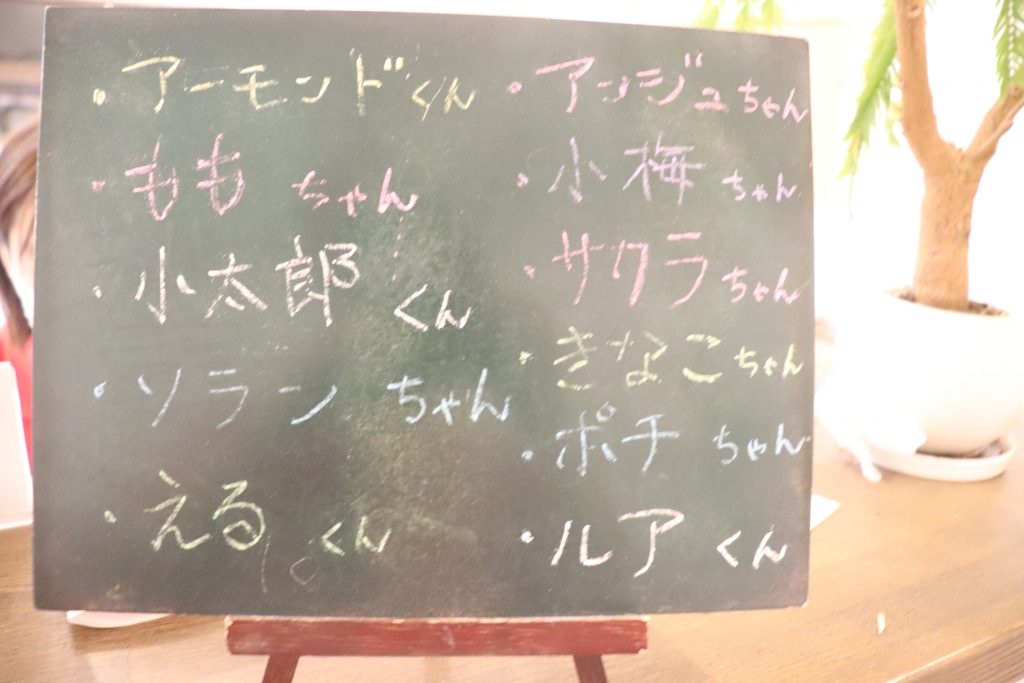 ・アーモンドくん
・ももちゃん
・小太郎くん
・ソランちゃん
・えるくん
・アンジュちゃん
・小梅ちゃん
・サクラちゃん
・きなこちゃん
・ポチちゃん
・ルアくん